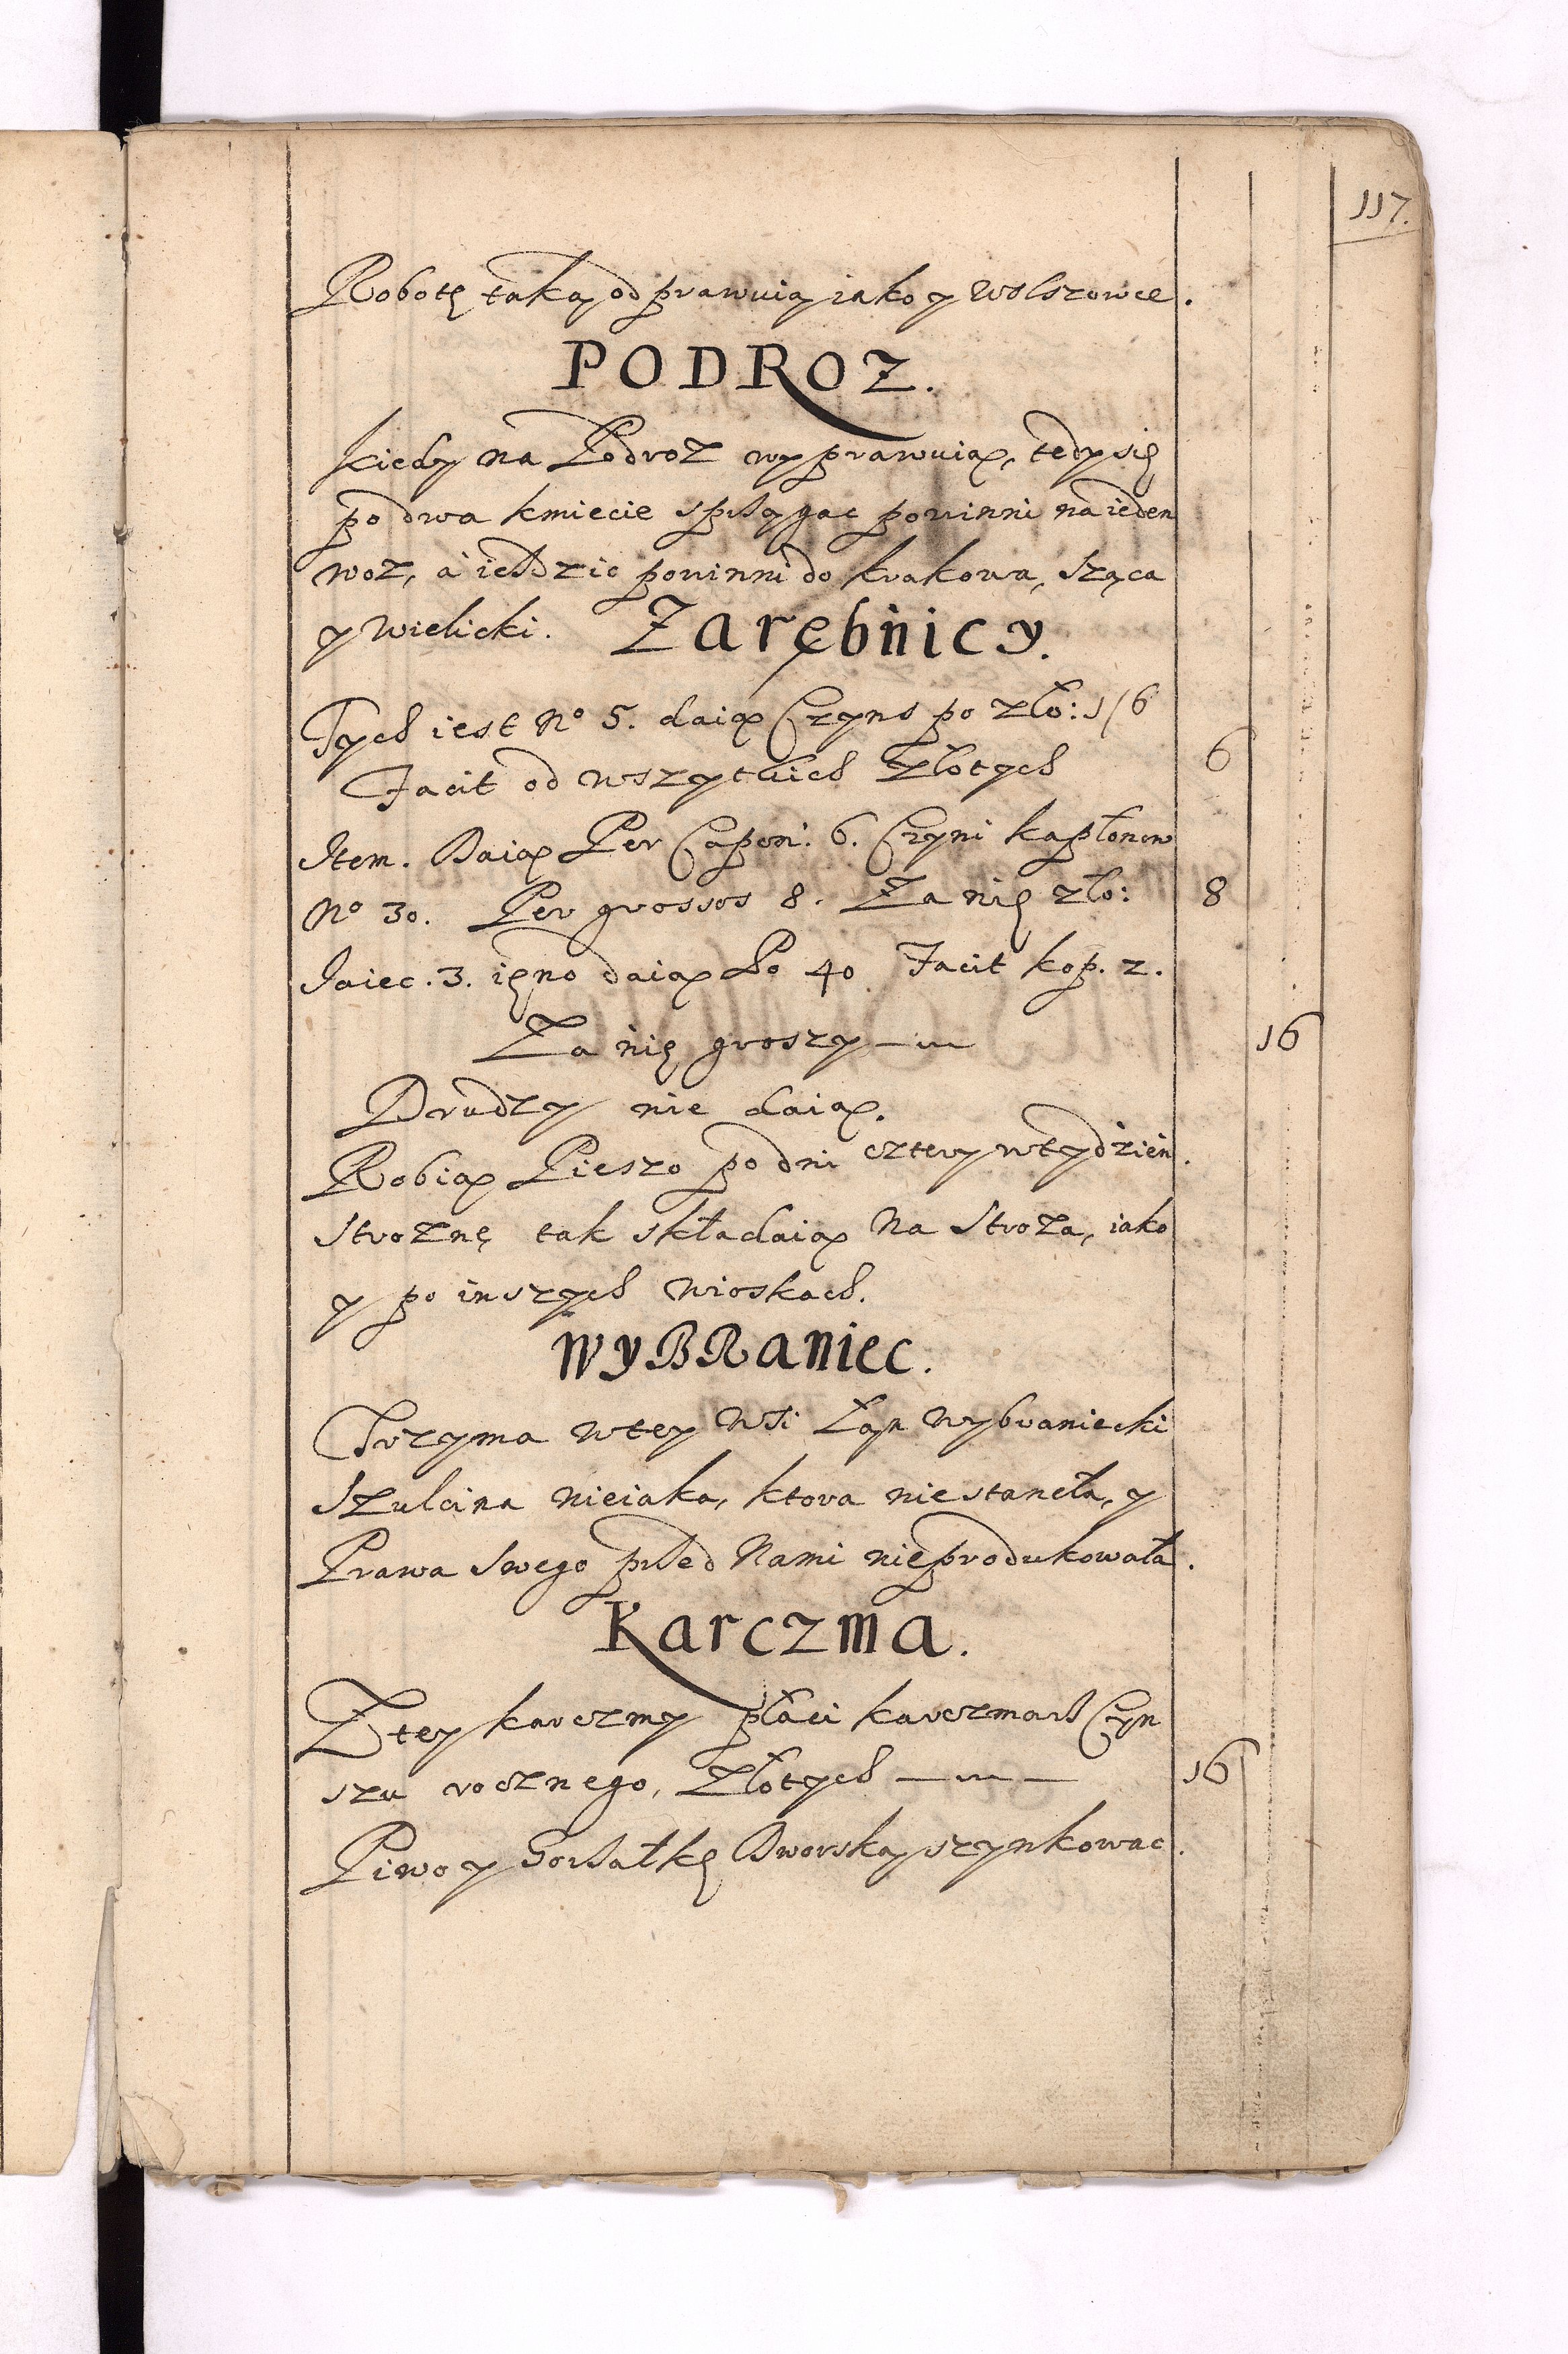 117.
Robotę taką odprawuią iako y wolszowce.
PODROZ.
Kiedy na Podroż wyprawuią, tedy się
po dwa kmiecie sprzągac powinni na ieden
woz, á ieździc powinni do Krakowa, Sząca
y Wielicki. Zarębnicy.
Tych iest No 5. daią Czyns po zło: 1/6
Facit od wszytkich Złotych 6
Item. Daią Per Capon: 6. Czyni kapłonow
No 30. Per grossos 8. Za nię zło: 8
Iaiec. 3. ięno daią Po 40 Facit kop. 2.
Za nię groszy 16
Drudzy nie daią.
Robią Pieszo po dni cztery w tydzień.
Strożnę tak składaią Na Stroża, iako
y po inszych Wioskach.
WyBRaniec.
Trzyma w tey Wsi Łan Wybraniecki
Szulcina nieiaka, ktora nie stanęła, y
Prawa Swego przed Nami nie produkowała.
Karczma.
Z tey karczmy płaci karczmarz Czyn
szu rocznego, Złotych 16
Piwo y Gorzałkę Dworską szynkowac.